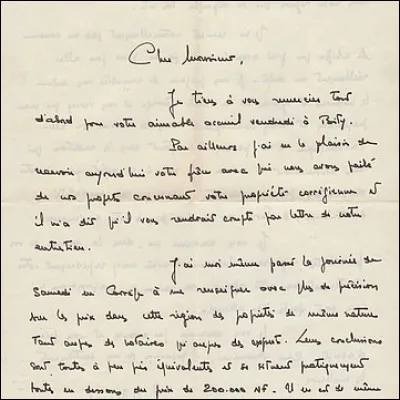 Cher Monsieur,
Je tiens à vous remercier tout
d'abord pour votre aimable accueil vendredi à
Par ailleurs j'ai eu le plaisir de
recevoir aujourd'hui votre frère avec qui nous avons parlé
de nos projets concernant votre propriété corrézienne et
il m'a dit qu'il vous rendrait compte par lettre de notre
entretien.
J'ai moi même passé la journée de
Samedi en Corrèze à me renseigner avec plus de précision
sur les prix dans cette région des propriétés de même nature
tant auprès des notaires qu'auprès des experts. Leurs conclusions
sont toutes à peu près équivalentes et se situent pratiquement
toutes en dessous du prix de 200.000 NF. Il en est de même